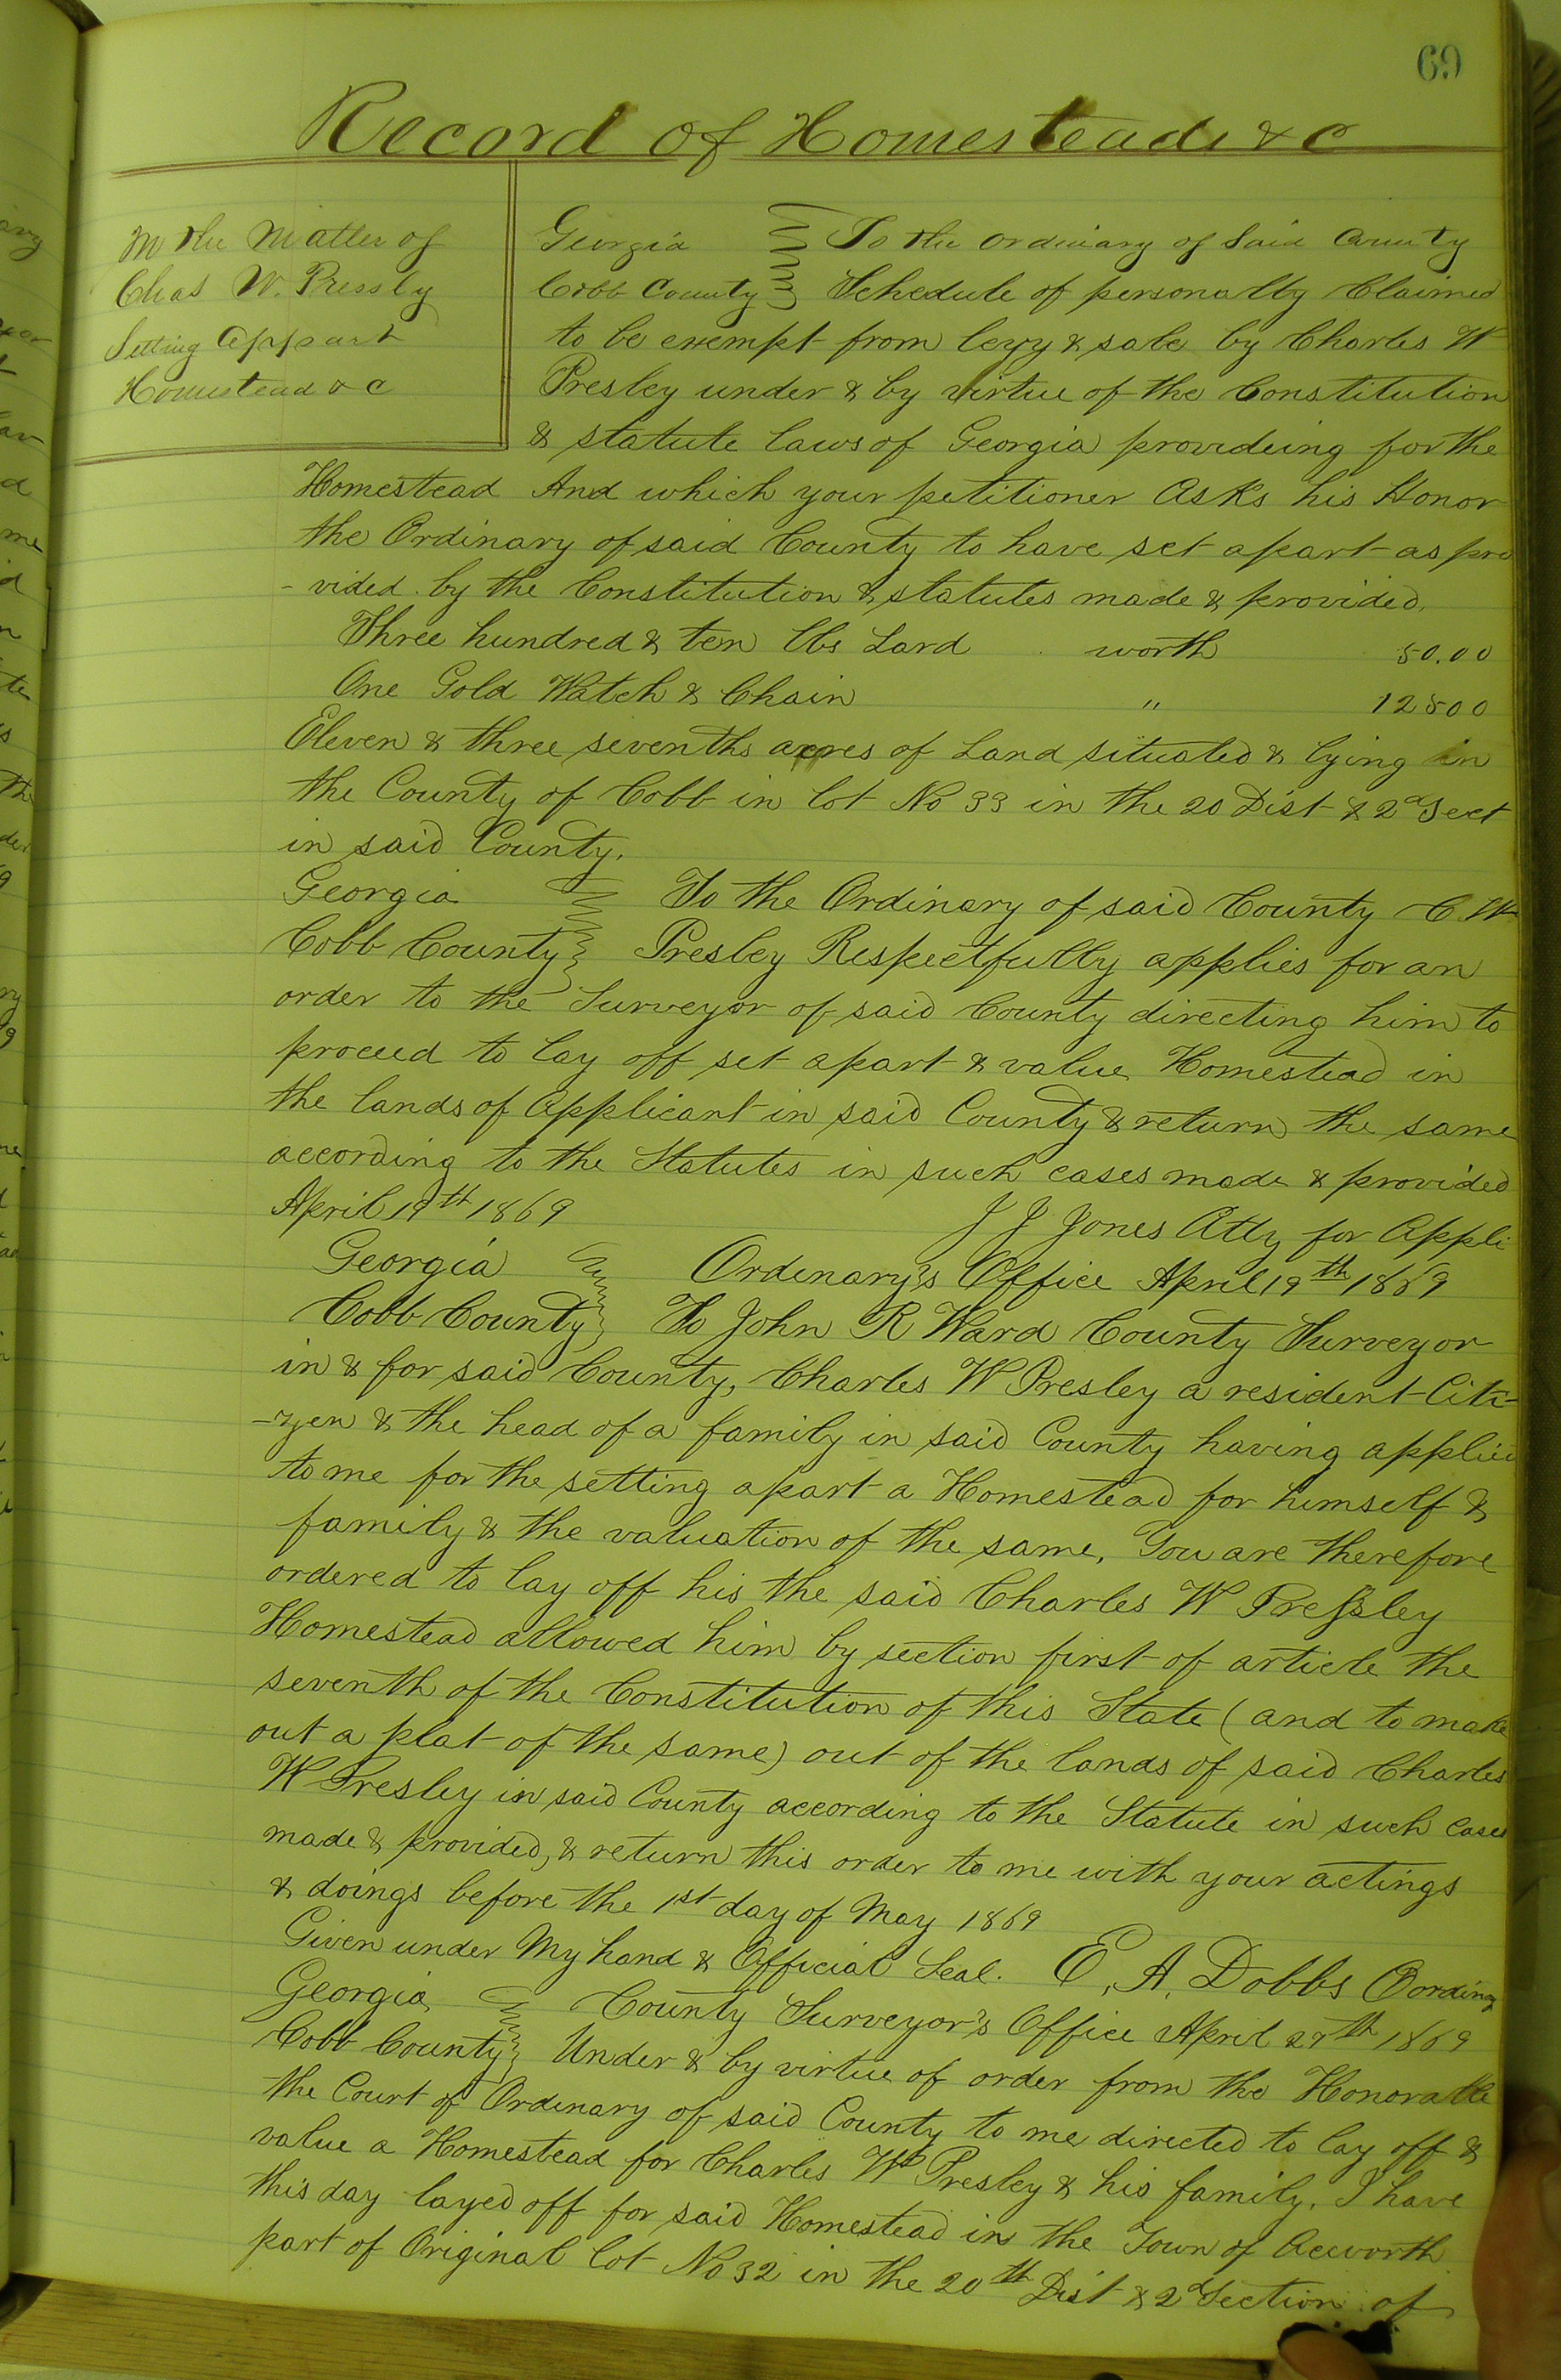 69
Record of Homesteads & c
In the Matter of
Chas W. Pressly
Setting Appart
Homestead & c
Georgia To the Ordinary of Said County
Cobb County Schedule of personalty Claimed
to be exempt from levy & sale by Charles W
Presley under & by virtue of the Constitution
& statute laws of Georgia provideing for the
Homestead And which your petitioner Asks his Honor
the Ordinary of said County to have set apart as pro
- vided by the Constitution & statutes made & provided.
Three hundred & ten lbs Lard worth 50.00
One Gold Watch & Chain " 12500
Eleven & three sevenths acres of Land situated & lying in
the County of Cobb in lot No 33 in the 20 Dist & 2d Sect
in said County.
Georgia To the Ordinary of said County C W
Cobb County Presley Respectfully applies for an
order to the Surveyor of said County directing him to
proceed to lay off set apart & value Homestead in
the lands of Applicant in said County & return the same
according to the Statutes in such cases made & provided
April 19th 1869 J J Jones Atty for Appli
Georgia Ordinary's Office April 19th 1869
Cobb County To John R Ward County Surveyor
in & for said County, Charles W Presley a resident Citi-
-zen & the head of a family in said County having applied
to me for the setting apart a Homestead for himself &
family & the valuation of the same, You are therefore
ordered to lay off his the said Charles W Pressley
Homestead allowed him by section first of article the
seventh of the Constitution of this State (and to make
out a plat of the same) out of the lands of said Charles
W Presley in said County according to the Statute in such cases
made & provided, & return this order to me with your actings
& doings before the 1st day of May 1869
Given under My hand & Official Seal. E, A, Dobbs
Georgia County Surveyor's Office April 27th 1869
Cobb County Under & by virtue of order from the Honorable
the Court of Ordinary of said County to me directed to lay off &
value a Homestead for Charles W Presley & his family. I have
this day layed off for said Homestead in the Town of Acworth
part of Original lot No 32 in the 20th Dist & 2d Section of